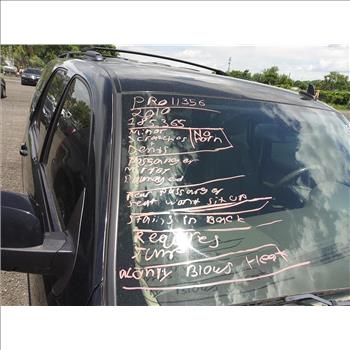 PRO11356
2010
185,365
Minor
Scratches No
Horn
Dents
Passenger
Mirror
Damaged
Rear Passanger
Seat wont sit up
Stains in Back
Requires
Jump
only Blows Heat